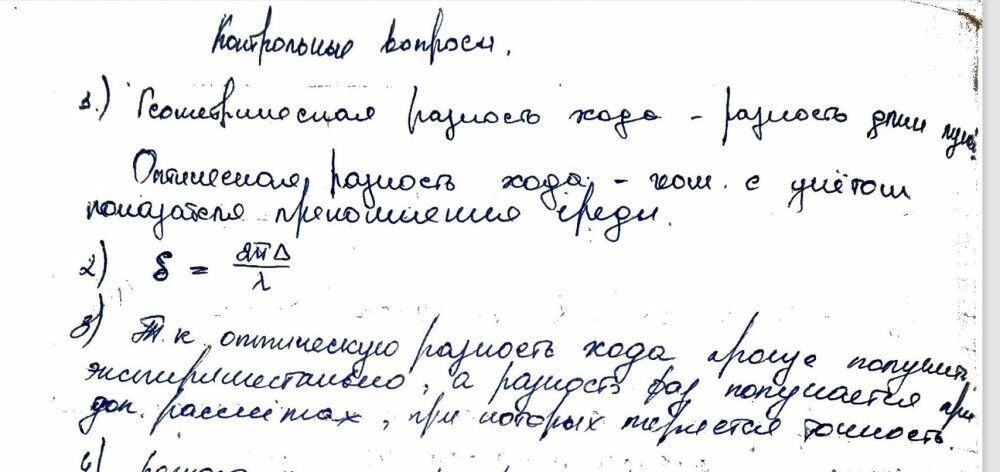 Контрольные вопросы.
1.) Геометрическая разность хода - разность длин путей.
Оптическая разность хода - геом. с учётом
показателя преломления среды.
2) δ = 2πΔ/λ
3) Т.к. оптическую разность хода проще получить
экспериментально, а разность фаз получается при
доп. рассчётах, при которых теряется точность.
4)